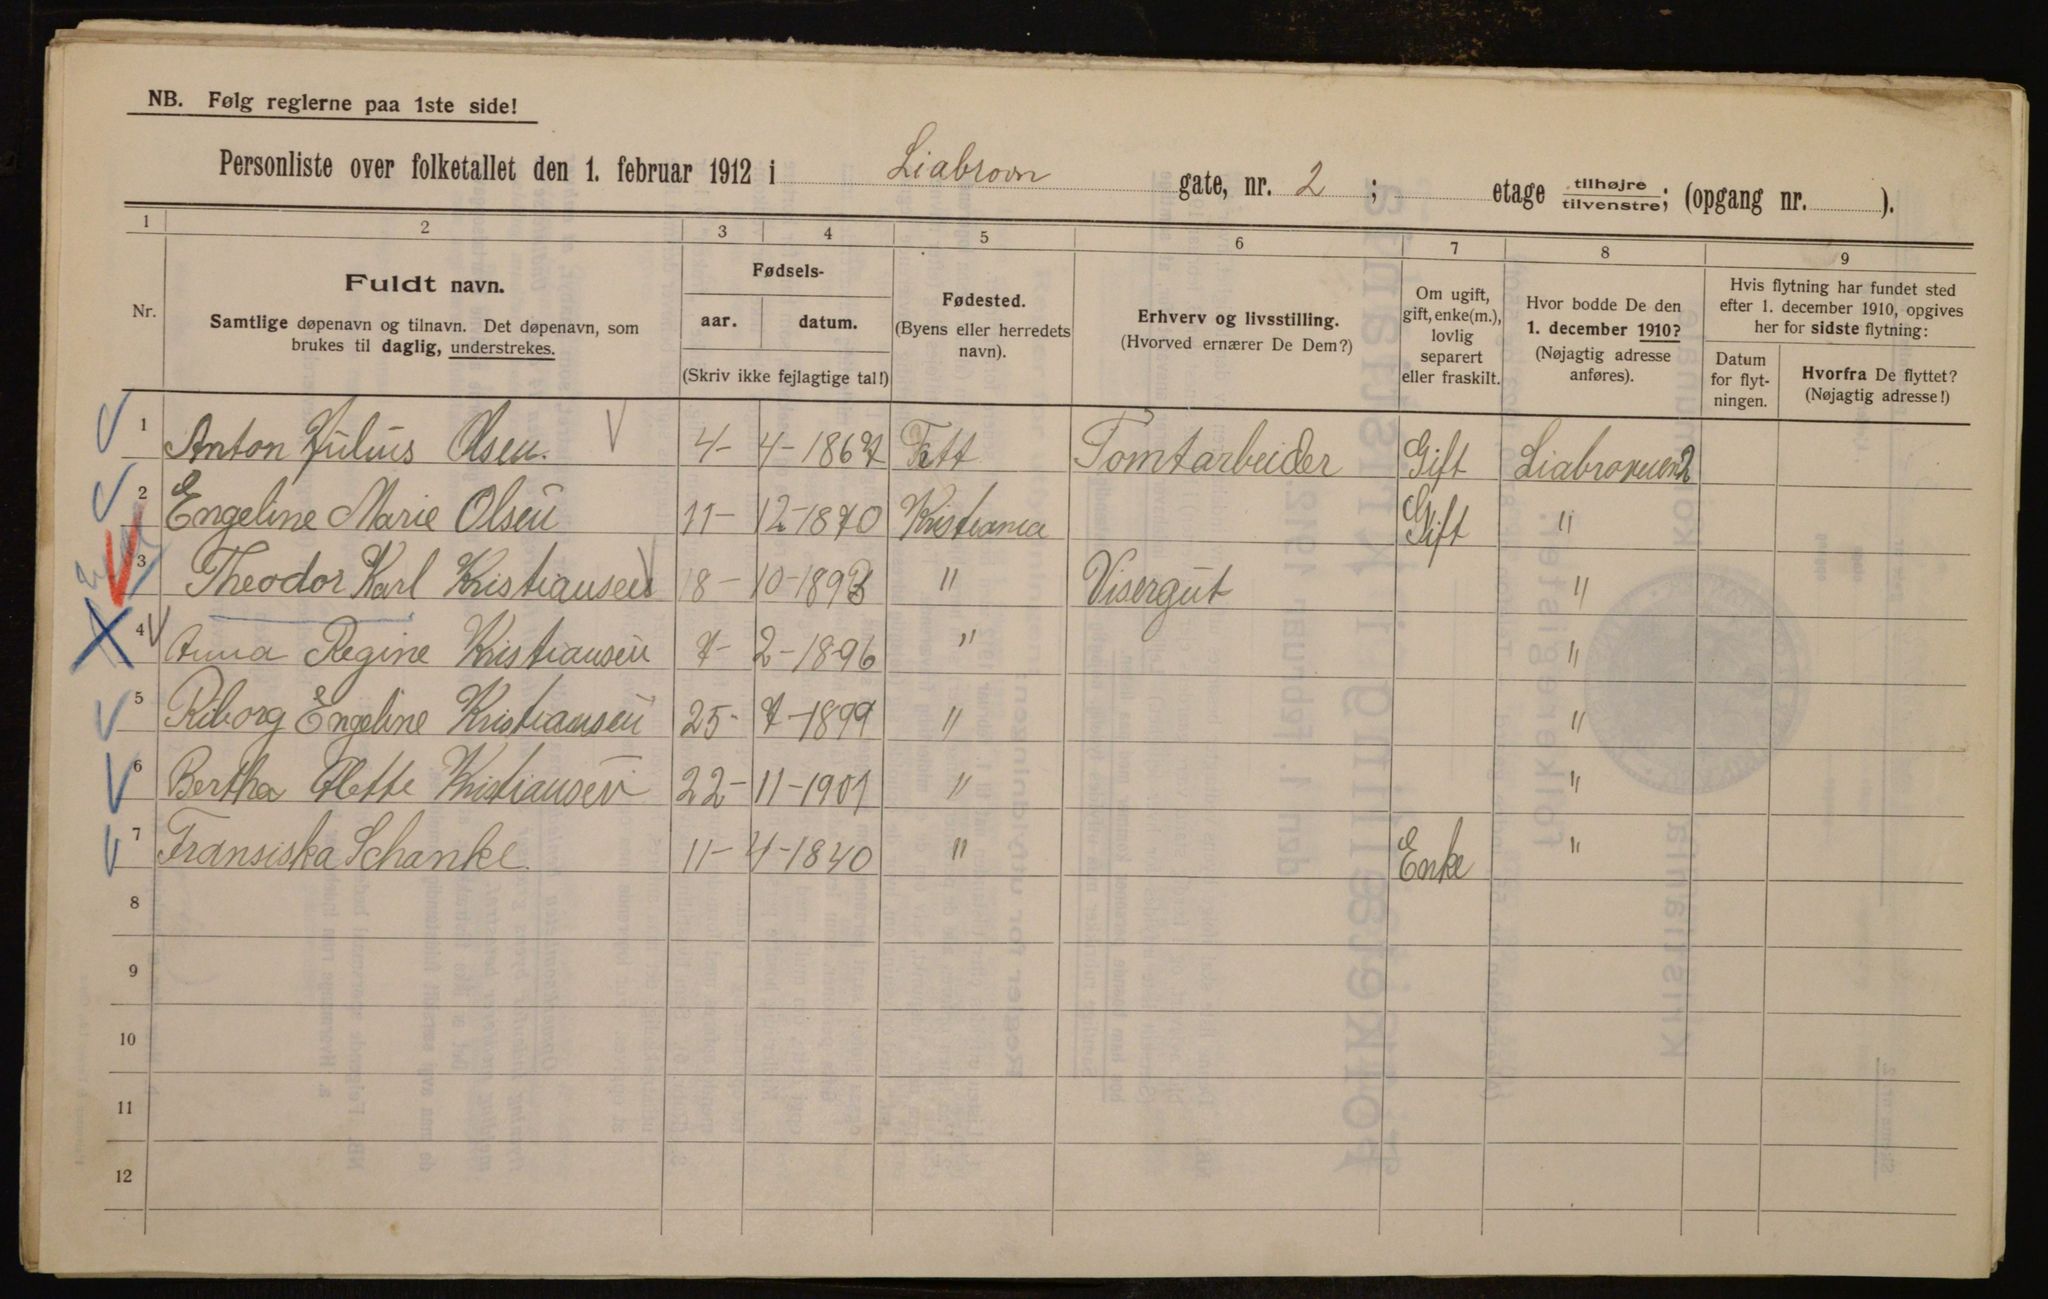 NB. Følg reglerne paa 1ste side!
Personliste over folketallet den 1. februar 1912 i Liabrovn gate, nr. 2 ; etage tilhøjre/tilvenstre; (opgang nr. ).
1 2 3 4 5 6 7 8 9
Nr.
Fuldt navn.
Samtlige døpenavn og tilnavn. Det døpenavn, som
brukes til daglig, understrekes.
Fødsels-
aar. datum.
(Skriv ikke fejlagtige tal!)
Fødested.
(Byens eller herredets
navn).
Erhverv og livsstilling.
(Hvorved ernærer De Dem?)
Om ugift,
gift, enke(m.),
lovlig
separert
eller fraskilt.
Hvor bodde De den
1. december 1910?
(Nøjagtig adresse
anføres).
Hvis flytning har fundet sted
efter 1. december 1910, opgives
her for sidste flytning:
Datum
for flyt-
ningen.
Hvorfra De flyttet?
(Nøjagtig adresse!)
1 Anton Julius Olsen. 4- 4-1867 Fett Tomtarbeider Gift Liabroveien 2
2 Engeline Marie Olsen 11- 12-1870 Kristiania Gift "
3 Theodor Karl Kristiansen 18- 10-1893 " Visergut "
4 Anna Regine Kristiansen 7- 2-1896 " "
5 Riborg Engeline Kristiansen 25- 7-1899 " "
6 Bertha Alette Kristiansen 22- 11-1901 " "
7 Fransiska Schanke 11- 4-1840 " Enke "
8
9
10
11
12